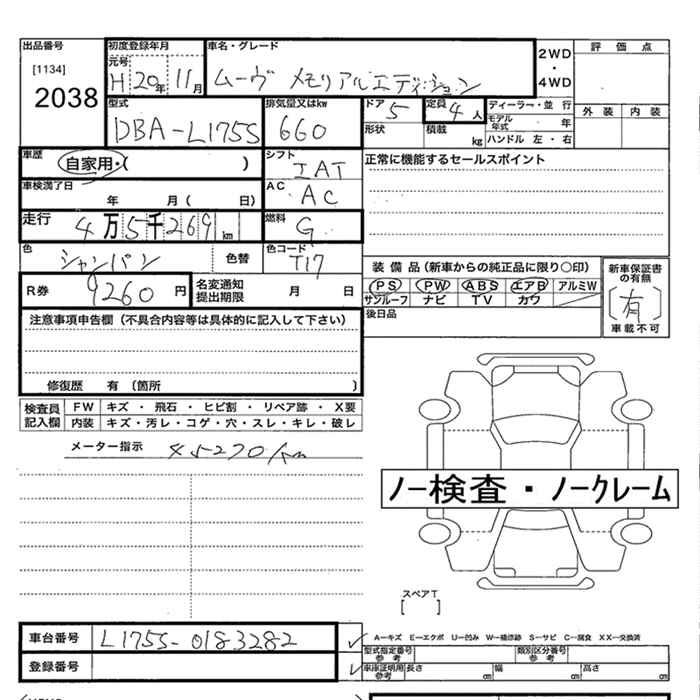 出品番号 初度登録年月 車名・グレード 評価点
[1134] 元号 2WD
2038 H 20年 11月 ムーヴ メモリアルエディション ・
4WD
型式 排気量又はkw ドア 定員 ディーラー・並 行 外装 内装
DBA-L175S 660 5 4人 モデル年式 年
形状 積載 kg ハンドル 左・右
車歴 自家用・( ) シフト IAT 正常に機能するセールスポイント
車検満了日 年 月( 日) AC AC
走行 4万5千269km 燃料 G
色 シャンパン 色替 色コード T17
装備品(新車からの純正品に限り○印) 新車保証書の有無
R券 9260円 名変通知提出期限 月 日 PS PW ABS エアB アルミW [有]
サンルーフ ナビ TV カワ
注意事項申告欄(不具合内容等は具体的に記入して下さい) 後日品 車載不可
修復歴 有 〔箇所 〕
検査員記入欄 FW キズ ・ 飛石 ・ ヒビ割 ・ リペア跡 ・ X要
内装 キズ・汚レ・コゲ・穴・スレ・キレ・破レ
メーター指示 45270km
ノー検査・ノークレーム
スペアT
[ ]
車台番号 L175S-0183282 A―キズ E―エクボ U―凹み W―補修跡 S―サビ C―腐食 XX―交換済
型式指定番号参考 類別区分番号参考
登録番号 車庫証明用参考 長さ cm 幅 cm 高さ cm